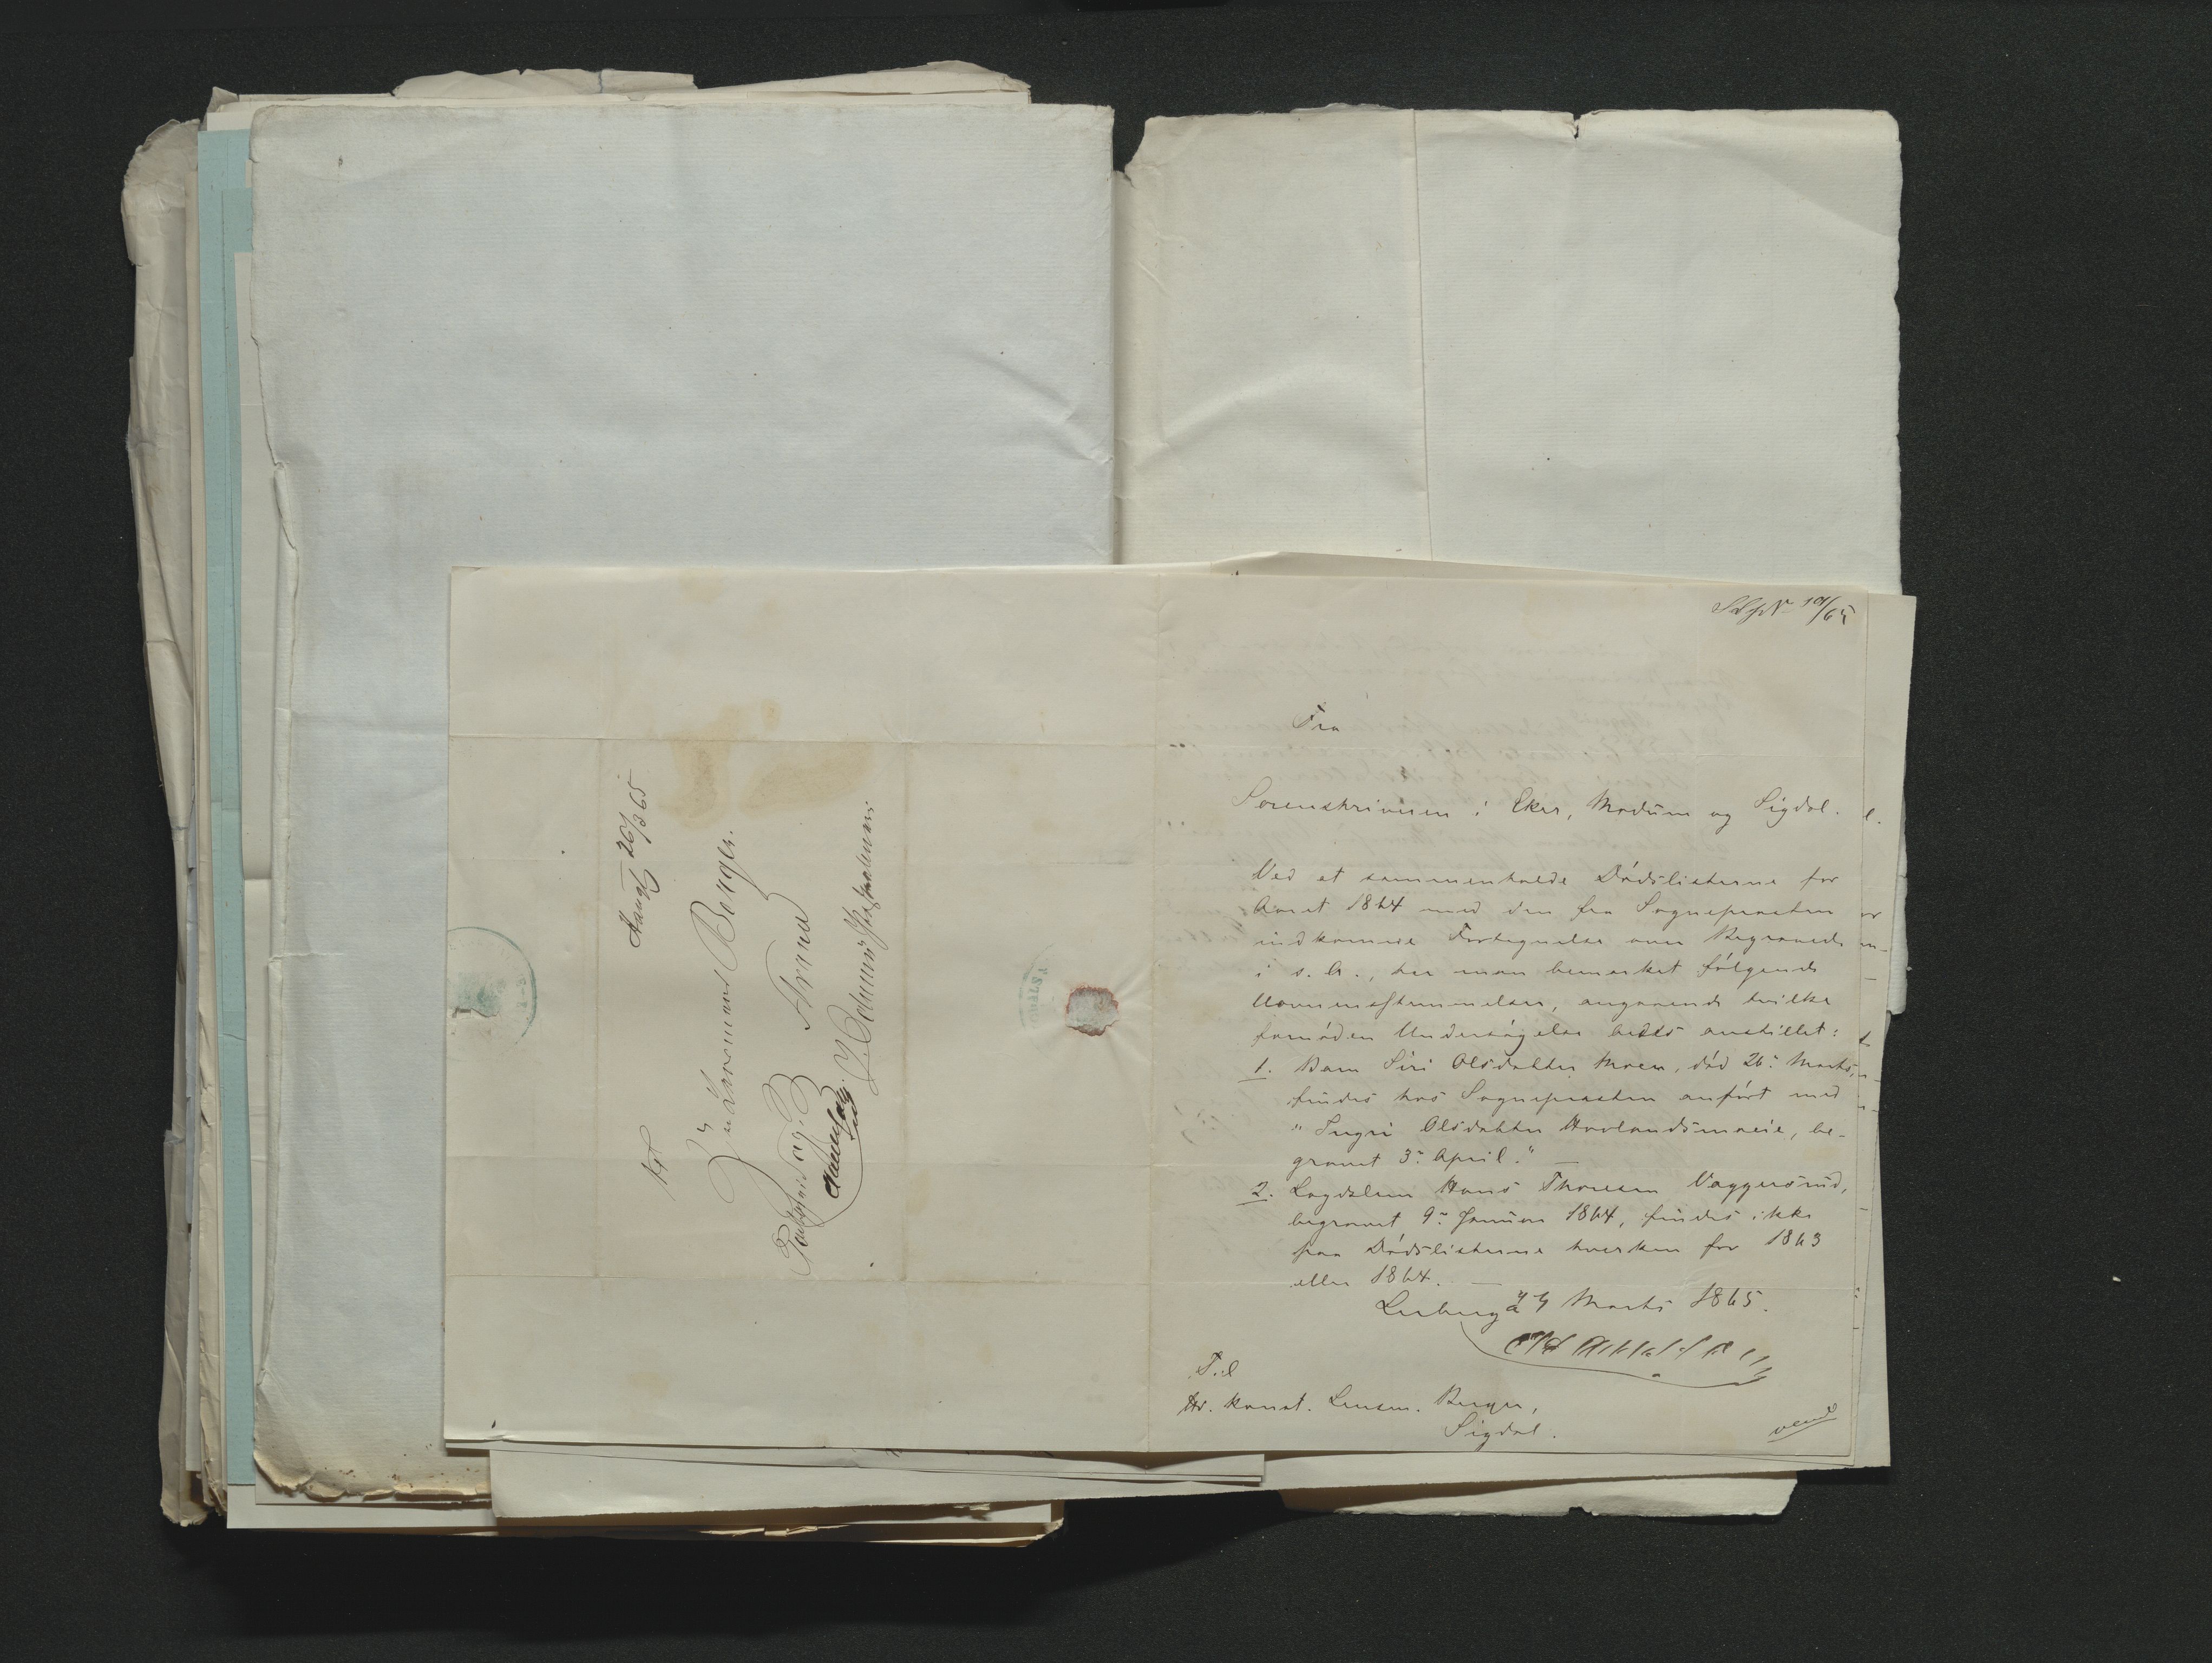 Fra
Sorenskriveren i Eker, Modum og Sigdal.
Ved at sammenholde Dödslisterne for
Aaret 1864 med den fra Sognepresten
indkomne Fortegnelse over Begravede
i s. A., har man bemerket fölgende
Uoverensstemmelser, angaaende hvilke
fornöden Undersögelse bedes anstillet:
1. Barn Siri Olsdatter Moen, död 26. Marts,
findes hos Sognepresten anfört med
"Ingri Olsdatter Hovlandsmoeie, be-
gravet 3. April." —
2. Lægdslem Hans Thoresen Vaggersrud,
begravet 9. Januar 1864, findes ikke
paa Dödslisterne hverken for 1863
eller 1864. —
Marts 1865.
Til
Hr. konst. Lensm. Berger,
Sigdal.
vend
Haugf 26/3 65
Lensmand Berger